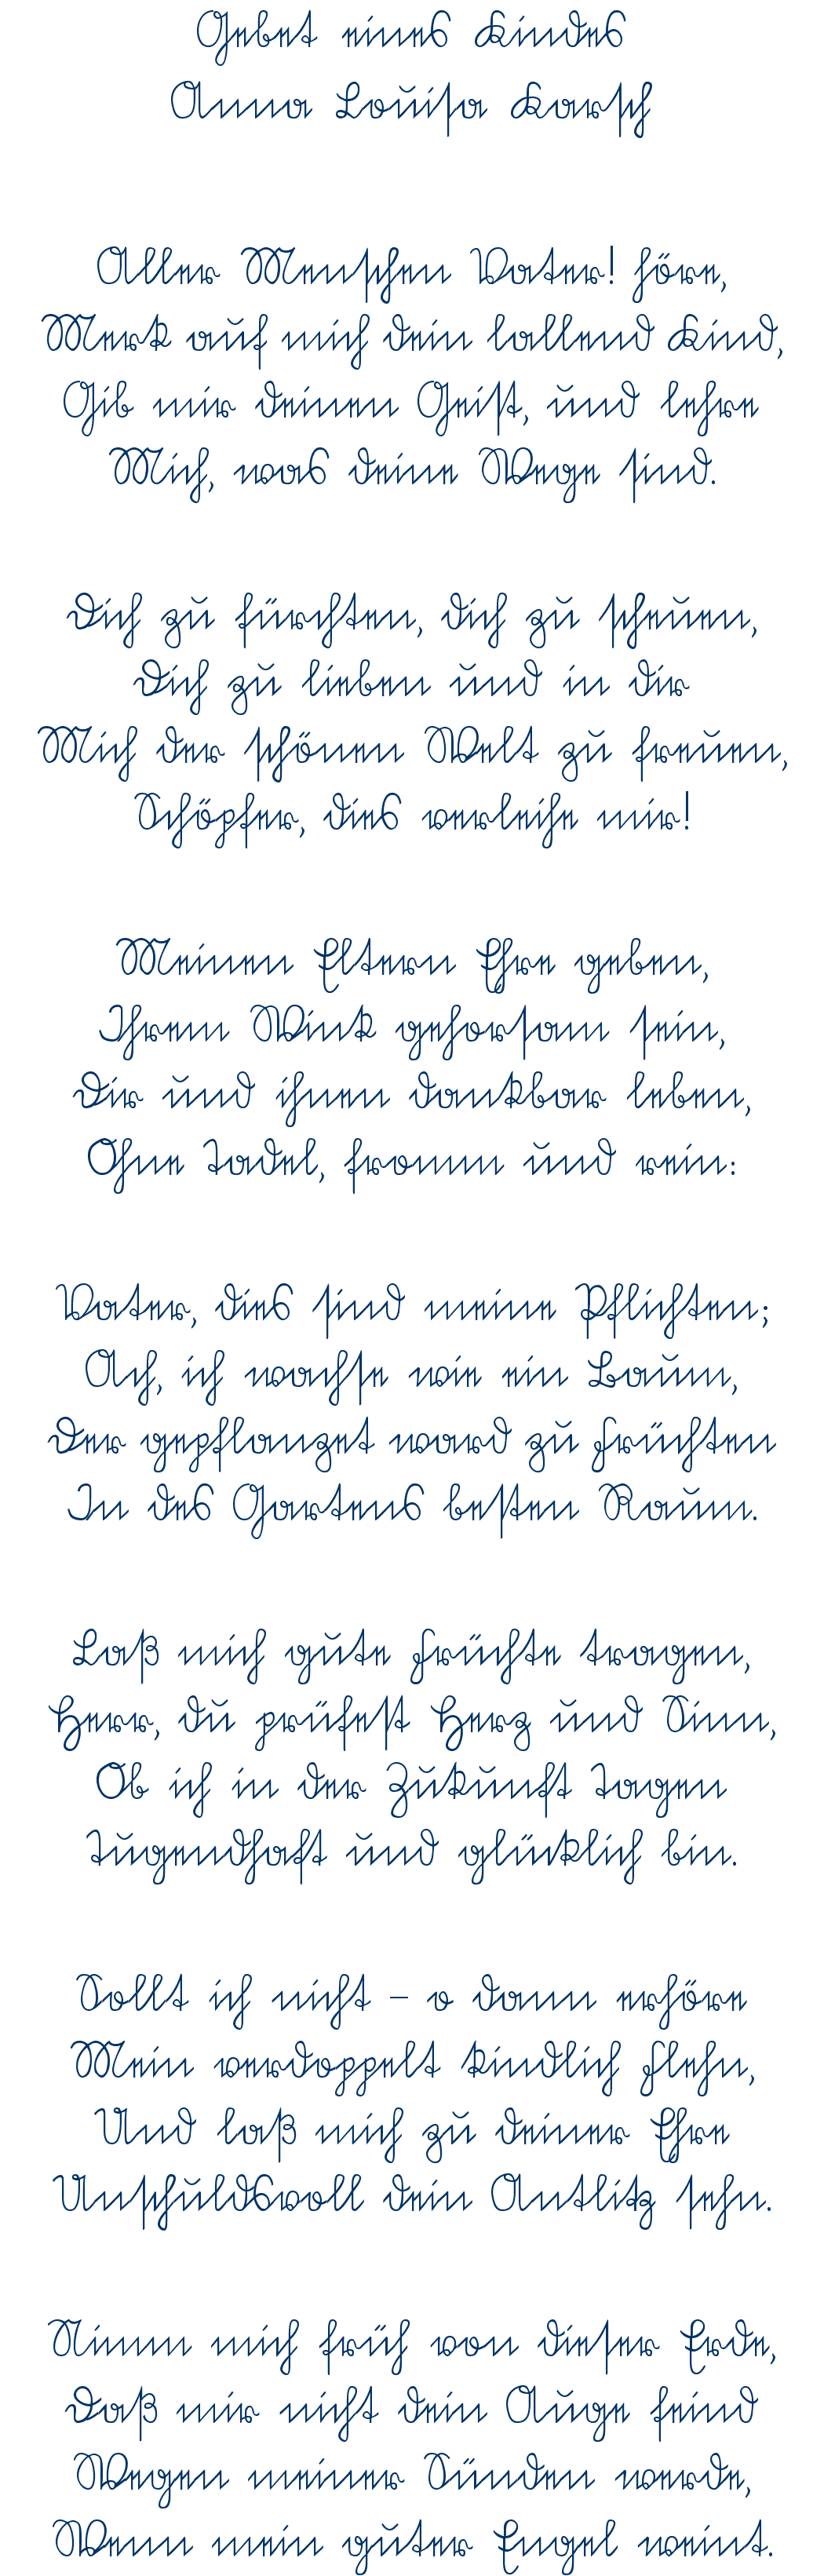 Gebet eines Kindes
Anna Louisa Karsch
Aller Menschen Vater! höre,
Merk auf mich dein lallend Kind,
Gib mir deinen Geist, und lehre
Mich, was deine Wege sind.
Dich zu fürchten, dich zu scheuen,
Dich zu lieben und in dir
Mich der schönen Welt zu freuen,
Schöpfer, dies verleihe mir!
Meinen Eltern Ehre geben,
Ihrem Wink gehorsam sein,
Dir und ihnen dankbar leben,
Ohne Tadel, fromm und rein:
Vater, dies sind meine Pflichten;
Ach, ich wachse wie ein Baum,
Der gepflanzet ward zu Früchten
In des Gartens besten Raum.
Laß mich gute Früchte tragen,
Herr, du prüfest Herz und Sinn,
Ob ich in der Zukunft Tagen
Tugendhaft und glücklich bin.
Sollt ich nicht – o dann erhöre
Mein verdoppelt kindlich Flehn,
Und laß mich zu deiner Ehre
Unschuldsvoll dein Antlitz sehn.
Nimm mich früh von dieser Erde,
Daß mir nicht dein Auge feind
Wegen meiner Sünden werde,
Wenn mein guter Engel weint.